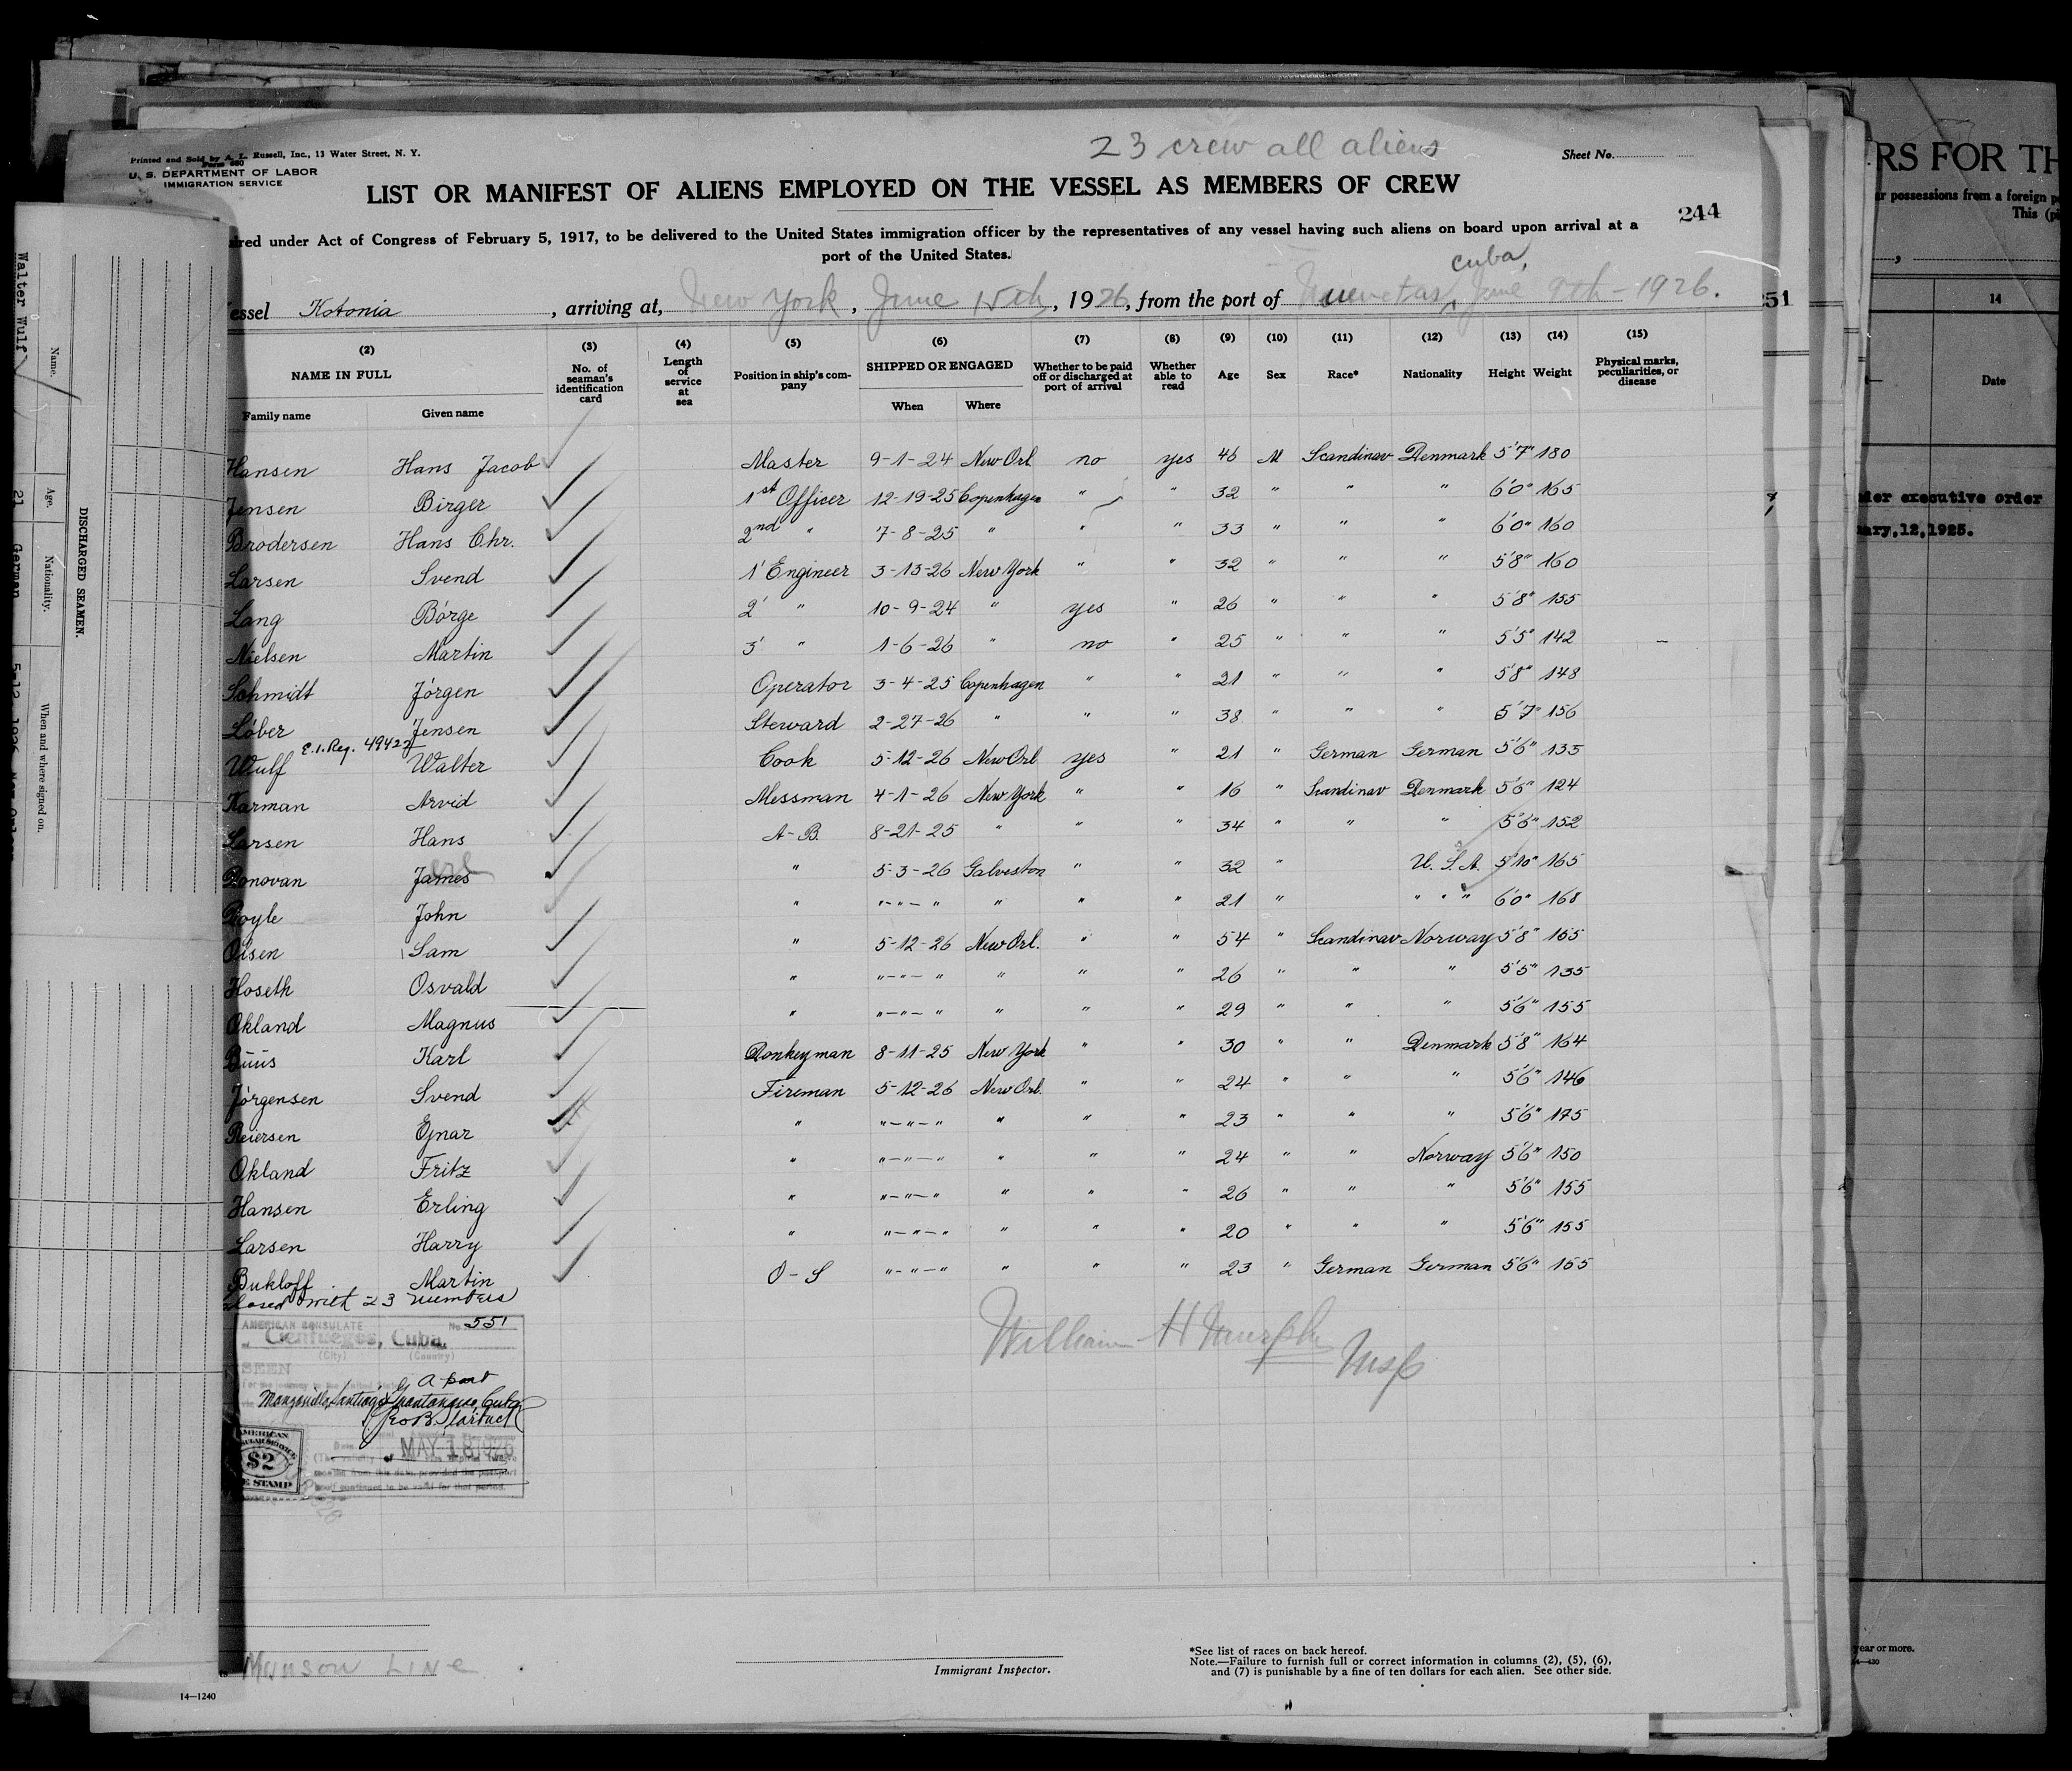 Printed and Sold by A. L. Russell, Inc., 13 Water Street, N. Y.
Form 680
U. S. DEPARTMENT OF LABOR
IMMIGRATION SERVICE
23 crew all aliens
Sheet No.
LIST OR MANIFEST OF ALIENS EMPLOYED ON THE VESSEL AS MEMBERS OF CREW
244
ired under Act of Congress of February 5, 1917, to be delivered to the United States immigration officer by the representatives of any vessel having such aliens on board upon arrival at a
port of the United States.
Cuba,
essel Kotonia, arriving at, New York, June 15th, 1926, from the port of Nuevetas, June 9th - 1926.
251
(2) (3) (4) (5) (6) (7) (8) (9) (10) (11) (12) (13) (14) (15)
NAME IN FULL
Family name
Given name
No. of seaman's identification card
Length of service at sea
Position in ship's company
SHIPPED OR ENGAGED
When
Where
Whether to be paid off or discharged at port of arrival
Whether able to read
Age
Sex
Race*
Nationality
Height
Weight
Physical marks, peculiarities, or disease
Hansen Hans Jacob Master 9-1-24 New Orl. no yes 46 M Scandinav Denmark 5'7" 180
Jensen Birger 1st Officer 12-19-25 Copenhagen " " 32 " " " 6'0" 165
Brodersen Hans Chr. 2nd " 7-8-25 " " " 33 " " " 6'0" 160
Larsen Svend 1' Engineer 3-13-26 New York " " 32 " " " 5'8" 160
Lang Börge 2' " 10-9-24 " yes " 26 " " " 5'8" 155
Nielsen Martin 3' " 1-6-26 " no " 25 " " " 5'5" 142 -
Schmidt Jörgen Operator 3-4-25 Copenhagen " " 21 " " " 5'8" 148
Löber Jensen Steward 2-27-26 " " " 38 " " " 5'7" 156
E.I. Reg. 49422
Wulf Walter Cook 5-12-26 New Orl. yes " 21 " German German 5'6" 135
Karman Arvid Messman 4-1-26 New York " " 16 " Scandinav Denmark 5'6" 124
Larsen Hans A-B. 8-21-25 " " " 34 " " " 5'6" 152
Donovan James " 5-3-26 Galveston " " 32 " U. S. A. 5'10" 165
Doyle John " "-"-" " " " 21 " " " " 6'0" 168
Olsen Sam " 5-12-26 New Orl. " " 54 " Scandinav Norway 5'8" 165
Hoseth Osvald " "-"-" " " " 26 " " " 5'5" 135
Okland Magnus " "-"-" " " " 29 " " " 5'6" 155
Büüs Karl Donkeyman 8-11-25 New York " " 30 " " Denmark 5'8" 164
Jörgensen Svend Fireman 5-12-26 New Orl. " " 24 " " " 5'6" 146
Reiersen Ejnar " "-"-" " " " 23 " " " 5'6" 175
Okland Fritz " "-"-" " " " 24 " " Norway 5'6" 150
Hansen Erling " "-"-" " " " 26 " " " 5'6" 155
Larsen Harry " "-"-" " " " 20 " " " 5'6" 155
Bukloff Martin O-S "-"-" " " " 23 " German German 5'6" 155
closed with 23 members
AMERICAN CONSULATE No. 551
at Cienfuegos, Cuba.
(City) (Country)
SEEN
A port
Manzanillo, Santiago, Guantanamo, Cuba
Geo B. Starbuck
MAY 18 1926
AMERICAN
$2
FEE STAMP
William H Murphy
Insp
Munson Line
Immigrant Inspector.
*See list of races on back hereof.
Note.—Failure to furnish full or correct information in columns (2), (5), (6),
and (7) is punishable by a fine of ten dollars for each alien. See other side.
14—1240
DISCHARGED SEAMEN.
Name.
Age.
Nationality.
When and where signed on.
Walter Wulf
21
German
RS FOR TH
r possessions from a foreign p
This (pi
14
Date
der executive order
ary,12,1925.
year or more.